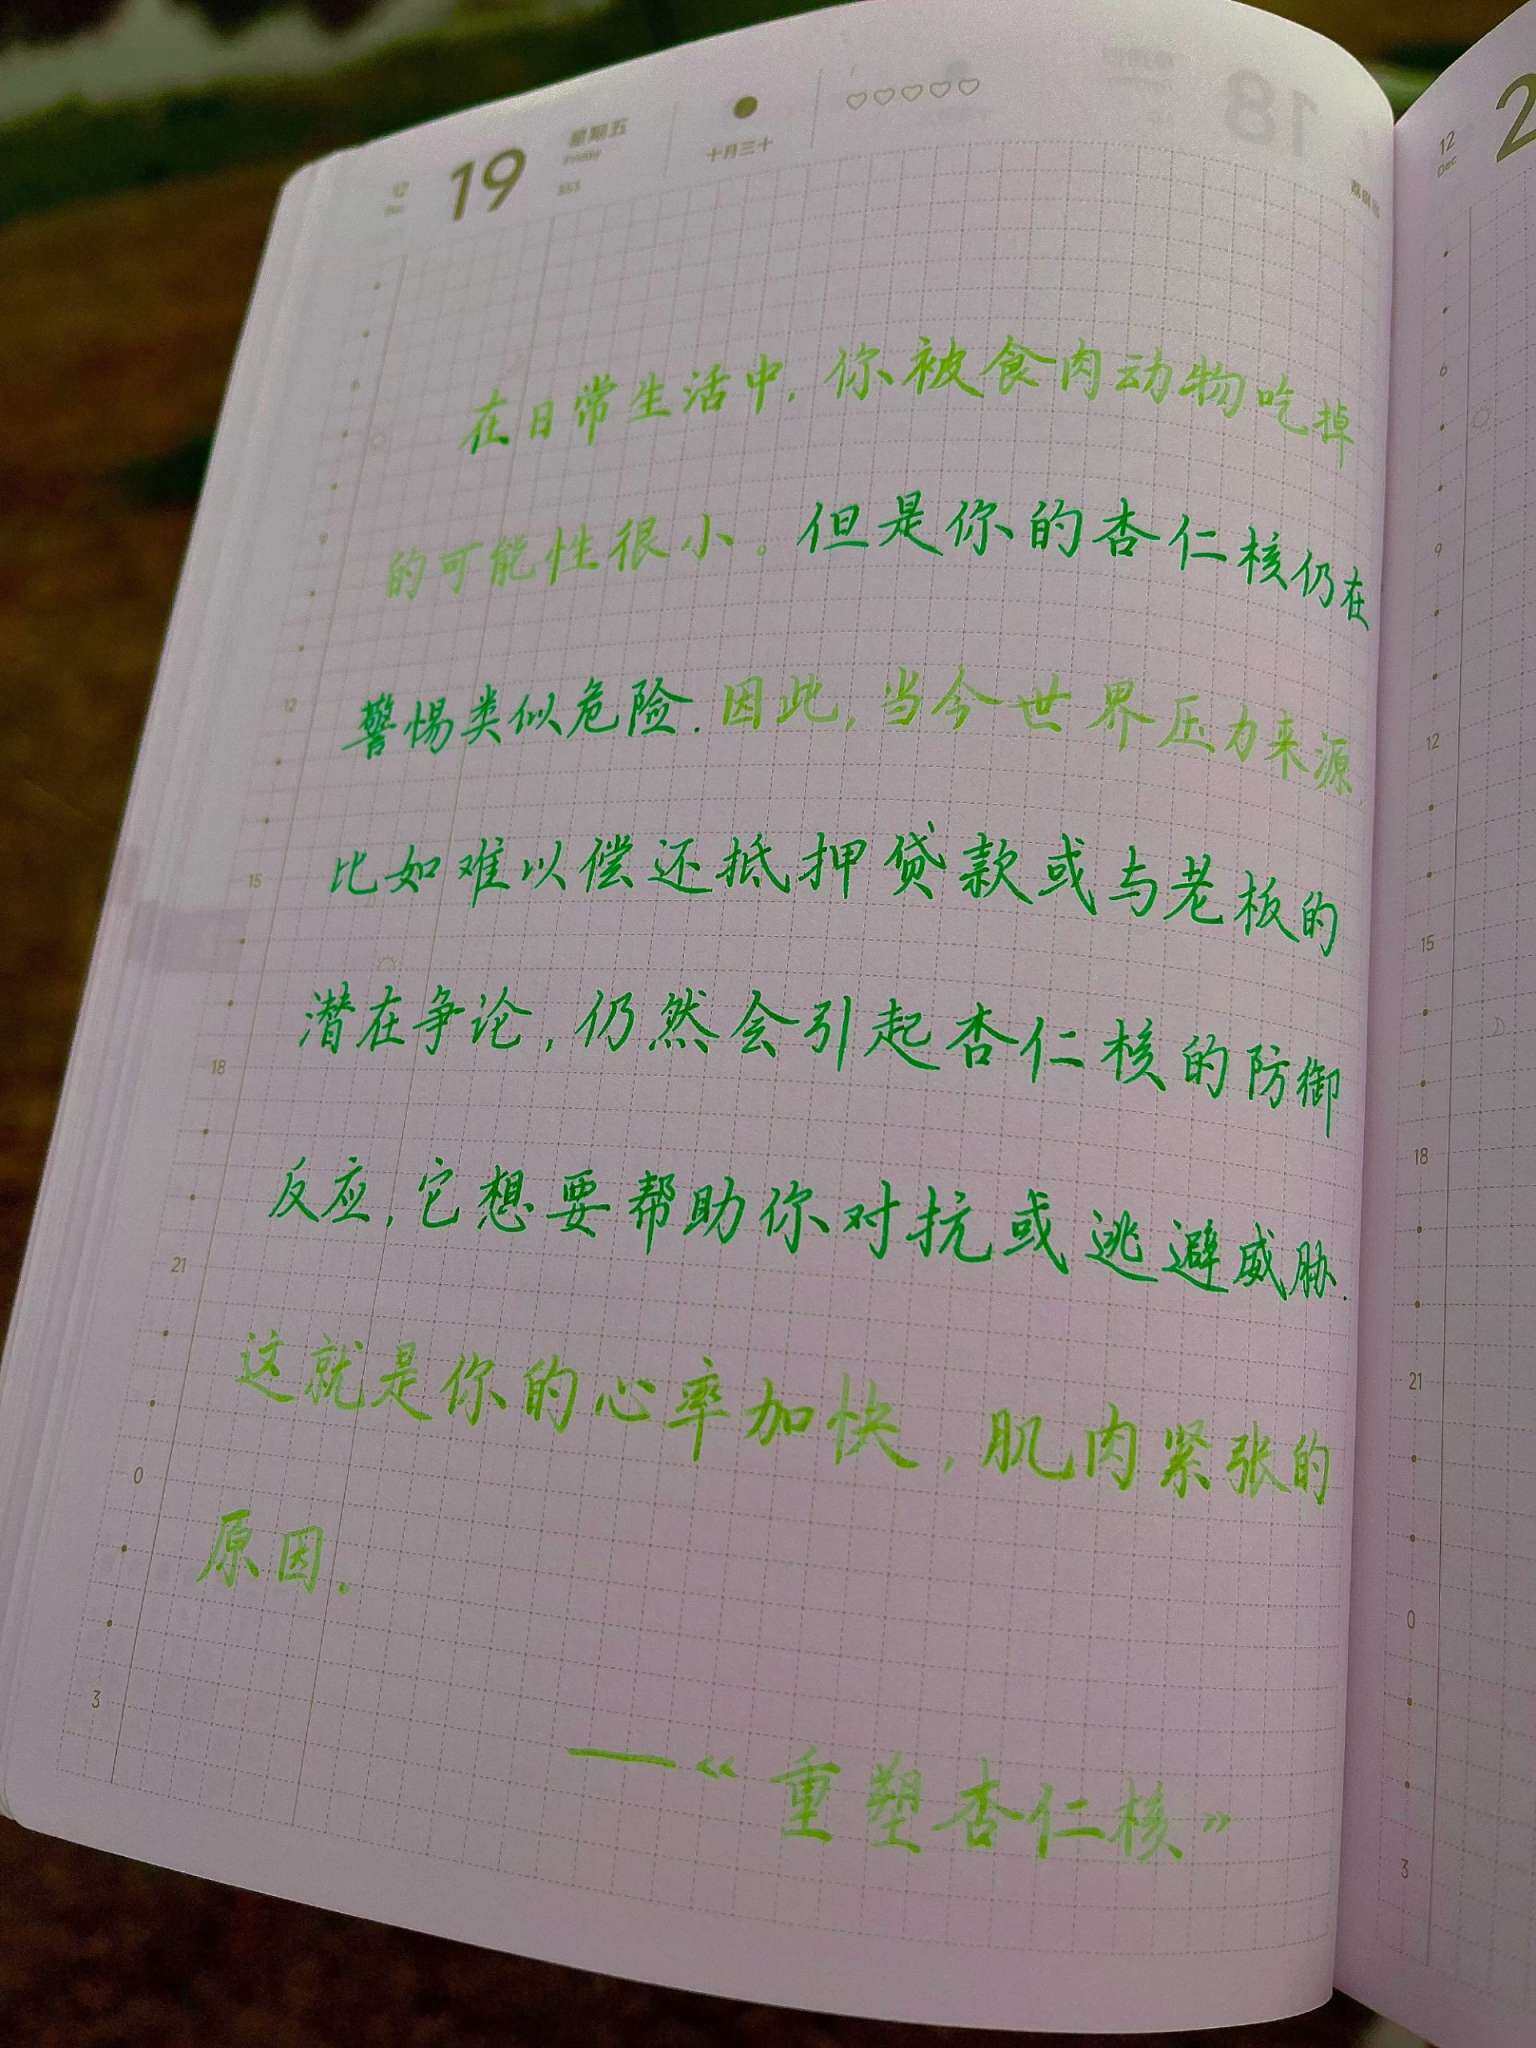 12
Dec
19
星期五
Friday
353
十月三十
♡♡♡♡♡
18
在日常生活中,你被食肉动物吃掉
的可能性很小。但是你的杏仁核仍在
警惕类似危险.因此,当今世界压力来源,
比如难以偿还抵押贷款或与老板的
潜在争论,仍然会引起杏仁核的防御
反应,它想要帮助你对抗或逃避威胁.
这就是你的心率加快,肌肉紧张的
原因.
—《重塑杏仁核》
6
9
12
15
18
21
0
3
12
Dec
2
6
9
12
15
18
21
0
3